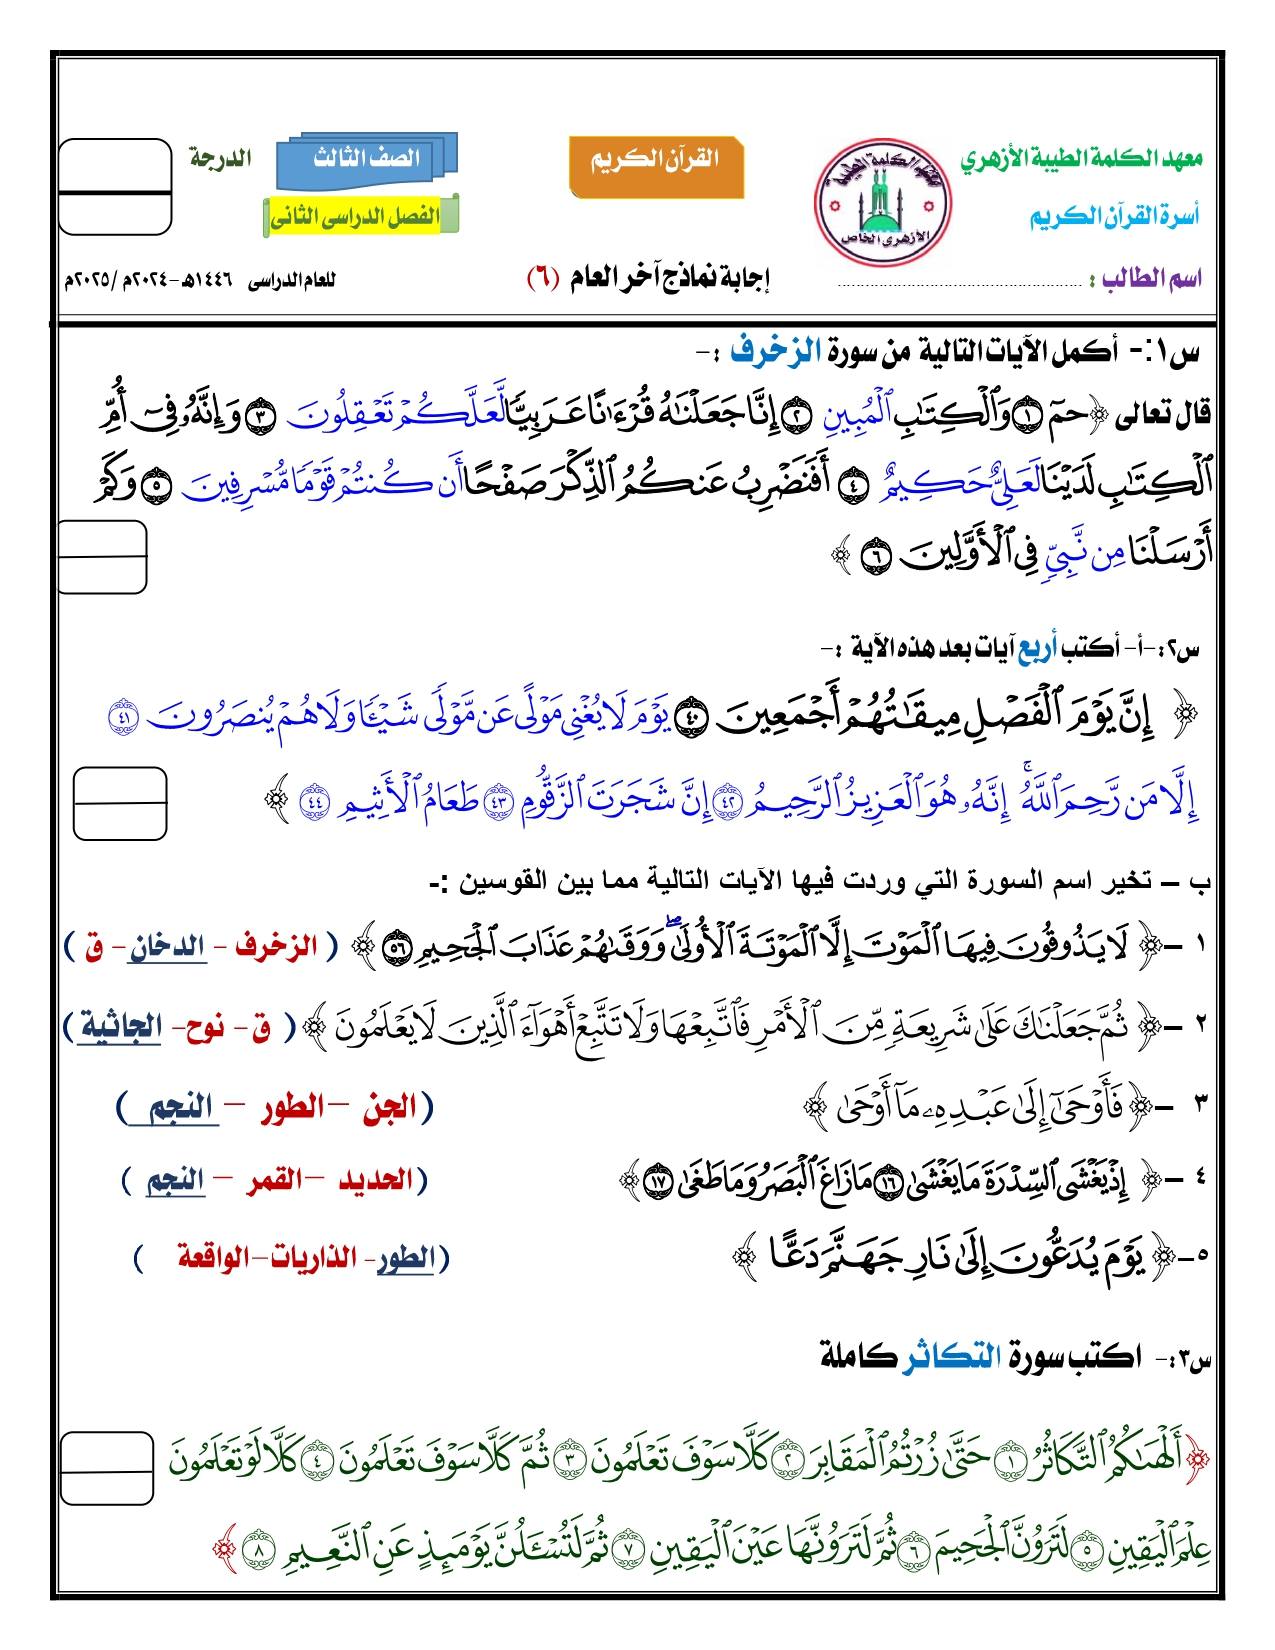 معهد الكلمة الطيبة الأزهري
القرآن الكريم
الصف الثالث
الدرجة
أسرة القرآن الكريم
الأزهرى الخاص
الفصل الدراسى الثانى
اسم الطالب : ......................................................
إجابة نماذج آخر العام (٦)
للعام الدراسى ١٤٤٦هـ -٢٠٢٤م /٢٠٢٥م
س١:- أكمل الآيات التالية من سورة الزخرف :-
قال تعالى ﴿حمٓ ١ وَٱلْكِتَٰبِ ٱلْمُبِينِ ٢ إِنَّا جَعَلْنَٰهُ قُرْءَٰنًا عَرَبِيًّا لَّعَلَّكُمْ تَعْقِلُونَ ٣ وَإِنَّهُۥ فِىٓ أُمِّ
ٱلْكِتَٰبِ لَدَيْنَا لَعَلِىٌّ حَكِيمٌ ٤ أَفَنَضْرِبُ عَنكُمُ ٱلذِّكْرَ صَفْحًا أَن كُنتُمْ قَوْمًا مُّسْرِفِينَ ٥ وَكَمْ
أَرْسَلْنَا مِن نَّبِىٍّ فِى ٱلْأَوَّلِينَ ٦ ﴾
س٢:-أ- أكتب أربع آيات بعد هذه الآية :-
﴿ إِنَّ يَوْمَ ٱلْفَصْلِ مِيقَٰتُهُمْ أَجْمَعِينَ ٤٠ يَوْمَ لَا يُغْنِى مَوْلًى عَن مَّوْلًى شَيْـًٔا وَلَا هُمْ يُنصَرُونَ ٤١
إِلَّا مَن رَّحِمَ ٱللَّهُ ۚ إِنَّهُۥ هُوَ ٱلْعَزِيزُ ٱلرَّحِيمُ ٤٢ إِنَّ شَجَرَتَ ٱلزَّقُّومِ ٤٣ طَعَامُ ٱلْأَثِيمِ ٤٤ ﴾
ب – تخير اسم السورة التي وردت فيها الآيات التالية مما بين القوسين :-
١ -﴿ لَا يَذُوقُونَ فِيهَا ٱلْمَوْتَ إِلَّا ٱلْمَوْتَةَ ٱلْأُولَىٰ ۖ وَوَقَىٰهُمْ عَذَابَ ٱلْجَحِيمِ ٥٦ ﴾ ( الزخرف - الدخان- ق )
٢ -﴿ ثُمَّ جَعَلْنَٰكَ عَلَىٰ شَرِيعَةٍ مِّنَ ٱلْأَمْرِ فَٱتَّبِعْهَا وَلَا تَتَّبِعْ أَهْوَآءَ ٱلَّذِينَ لَا يَعْلَمُونَ ﴾ ( ق- نوح- الجاثية)
٣ -﴿ فَأَوْحَىٰٓ إِلَىٰ عَبْدِهِۦ مَآ أَوْحَىٰ ﴾ (الجن –الطور – النجم )
٤ -﴿ إِذْ يَغْشَى ٱلسِّدْرَةَ مَا يَغْشَىٰ ١٦ مَا زَاغَ ٱلْبَصَرُ وَمَا طَغَىٰ ١٧ ﴾ (الحديد –القمر – النجم )
٥-﴿ يَوْمَ يُدَعُّونَ إِلَىٰ نَارِ جَهَنَّمَ دَعًّا ﴾ (الطور- الذاريات-الواقعة )
س٣:- اكتب سورة التكاثر كاملة
﴿أَلْهَىٰكُمُ ٱلتَّكَاثُرُ ١ حَتَّىٰ زُرْتُمُ ٱلْمَقَابِرَ ٢ كَلَّا سَوْفَ تَعْلَمُونَ ٣ ثُمَّ كَلَّا سَوْفَ تَعْلَمُونَ ٤ كَلَّا لَوْ تَعْلَمُونَ
عِلْمَ ٱلْيَقِينِ ٥ لَتَرَوُنَّ ٱلْجَحِيمَ ٦ ثُمَّ لَتَرَوُنَّهَا عَيْنَ ٱلْيَقِينِ ٧ ثُمَّ لَتُسْـَٔلُنَّ يَوْمَئِذٍ عَنِ ٱلنَّعِيمِ ٨ ﴾